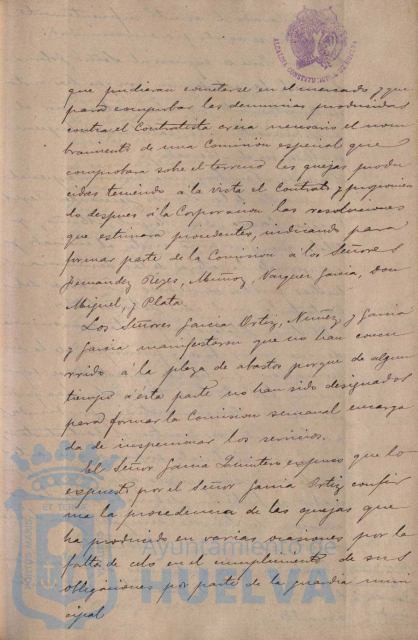 que pudieran cometerse en el mercado y que
para comprobar las denuncias producidas
contra el Contratista creia necesario el nom
bramiento de una Comision especial que
comprobara sobre el terreno las quejas produ
cidas teniendo á la vista el Contrato y proponien
do despues á la Corporacion las resoluciones
que estimara procedentes, indicando para
formar parte de la Comision á los Señores
Fernandez Reyes, Muñoz, Vazquez Garcia, Don
Miguel, y Plata.
Los Señores Garcia Ortiz, Nuñez y Garcia
y Garcia manifestaron que no han concu
rrido á la plaza de abastos porque de algun
tiempo á esta parte no han sido designados
para formar la Comision semanal encarga
da de inspeccionar los servicios.
El Señor Garcia Quintero expuso que lo
expuesto por el Señor Garcia Ortiz confir
ma la procedencia de las quejas que
ha producido en varias ocasiones por la
falta de celo en el cumplimiento de sus
obligaciones por parte de la guardia muni
cipal
Ayuntamiento de
HUELVA